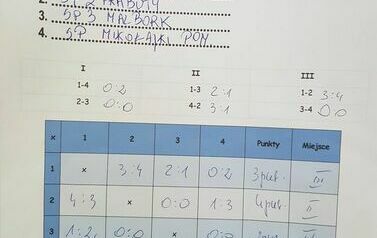 2. PRABUTY
3. SP 3 MALBORK
4. SP MIKOŁAJKI POM
I II III
1-4 0:2 1-3 2:1 1-2 3:4
2-3 0:0 4-2 3:1 3-4 0:0
x 1 2 3 4 Punkty Miejsce
1 x 3:4 2:1 0:2 3 pkt. III
2 4:3 x 0:0 1:3 4 pkt. II
3 1:2 0:0 x 0:0